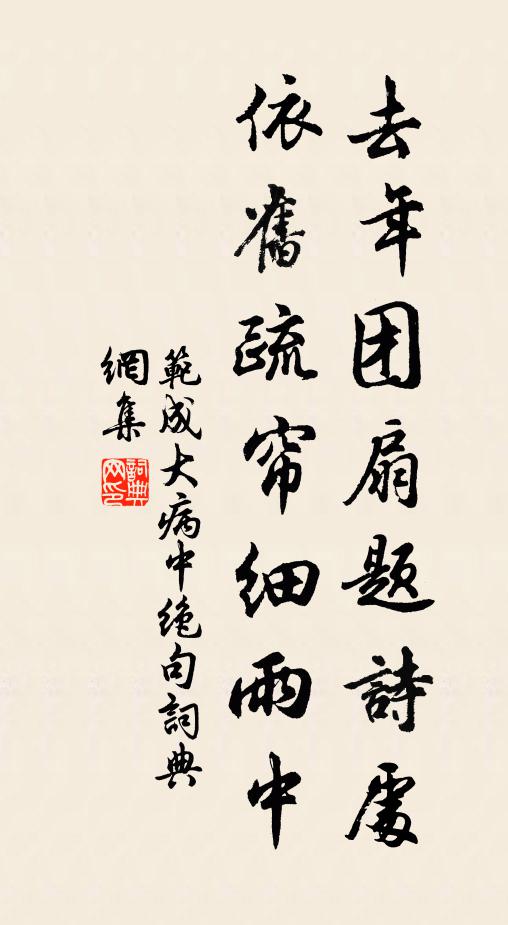 去年团扇题詩處
依舊疏帘细雨中
範成大病中绝句詞典
網集
詞典
网印